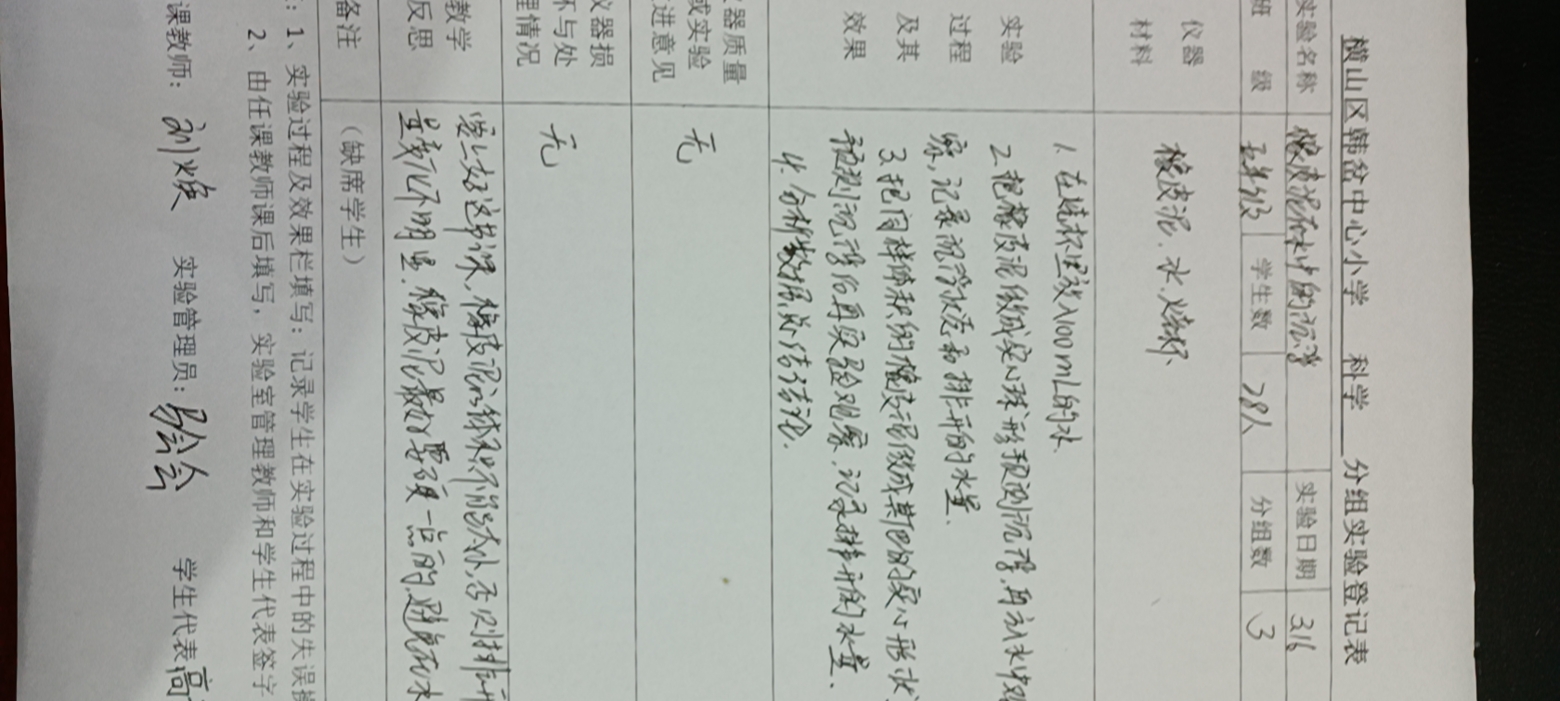 横山区韩岔中心小学 科学 分组实验登记表
实验名称 橡皮泥在水中的沉浮 实验日期 3.16
班 级 五年级 学生数 28人 分组数 3
仪器
材料
橡皮泥、水、烧杯、
实验
过程
及其
效果
1. 在烧杯里放入100mL的水
2. 把橡皮泥做成实心球形预测沉浮,再放水中观
察,记录沉浮状态和排开的水量.
3. 把同样体积的橡皮泥做成其他的实心形状
预测沉浮后再实验观察.记录排开的水量.
4. 分析数据,总结结论.
器质量
或实验
进意见
无
仪器损
坏与处
理情况
无
教学
反思
要上好这节课,橡皮泥的体积不能太小,否则排开
量变化不明显.橡皮泥最好要硬一点的,避免在水
备注 (缺席学生)
:1、实验过程及效果栏填写:记录学生在实验过程中的失误
2、由任课教师课后填写,实验室管理教师和学生代表签字
课教师: 刘焕 实验管理员: 学生代表 高